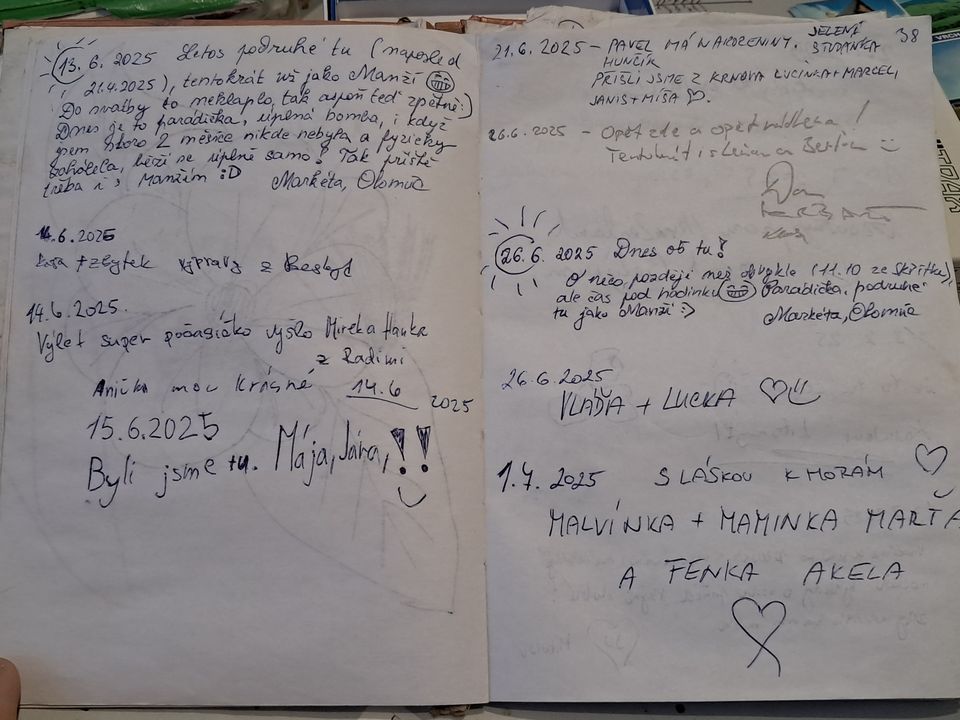 13. 6. 2025 Letos podruhé tu (naposled
21.4.2025), tentokrát už jako Manží
Do svatby to neklaplo, tak aspoň teď zpětně:)
Dnes je to paradička, úplná bomba, i když
jsem skoro 2 měsíce nikde nebyla a fyzičky
úplně samo! Tak příště
třeba i s Manžím :D Markéta, Olomouc
14.6.2025
+ zbytek výpravy z Beskyd
14.6.2025.
Výlet super počasíčko vyšlo Mirka Hanka
z Radimi
Anička moc krásné 14.6 2025
15.6.2025
Byli jsme tu. Mája, Jára, !!
38
21.6. 2025 – PAVEL MÁ NAROZENINY. JELENÍ
HUNČÍK STUDÁNKA
PŘIŠLI JSME Z KRNOVA LUCINKA+MARCEL,
JANIS+MÍŠA ♡.
26.6. 2025 – Opět zde a opět nádhera!
Tentokrát i s
26.6. 2025 Dnes 05 tu!
O něco později než obvykle (11.10 ze Skřítka),
ale čas pod hodinku Paradička, podruhé
tu jako Manží :) Markéta, Olomouc
26.6.2025
VLÁĎA + LUCKA ♡
1.7. 2025 S LÁSKOU K HORÁM ♡
MALVÍNKA + MAMINKA MARŤA
A FENKA AKELA
♡